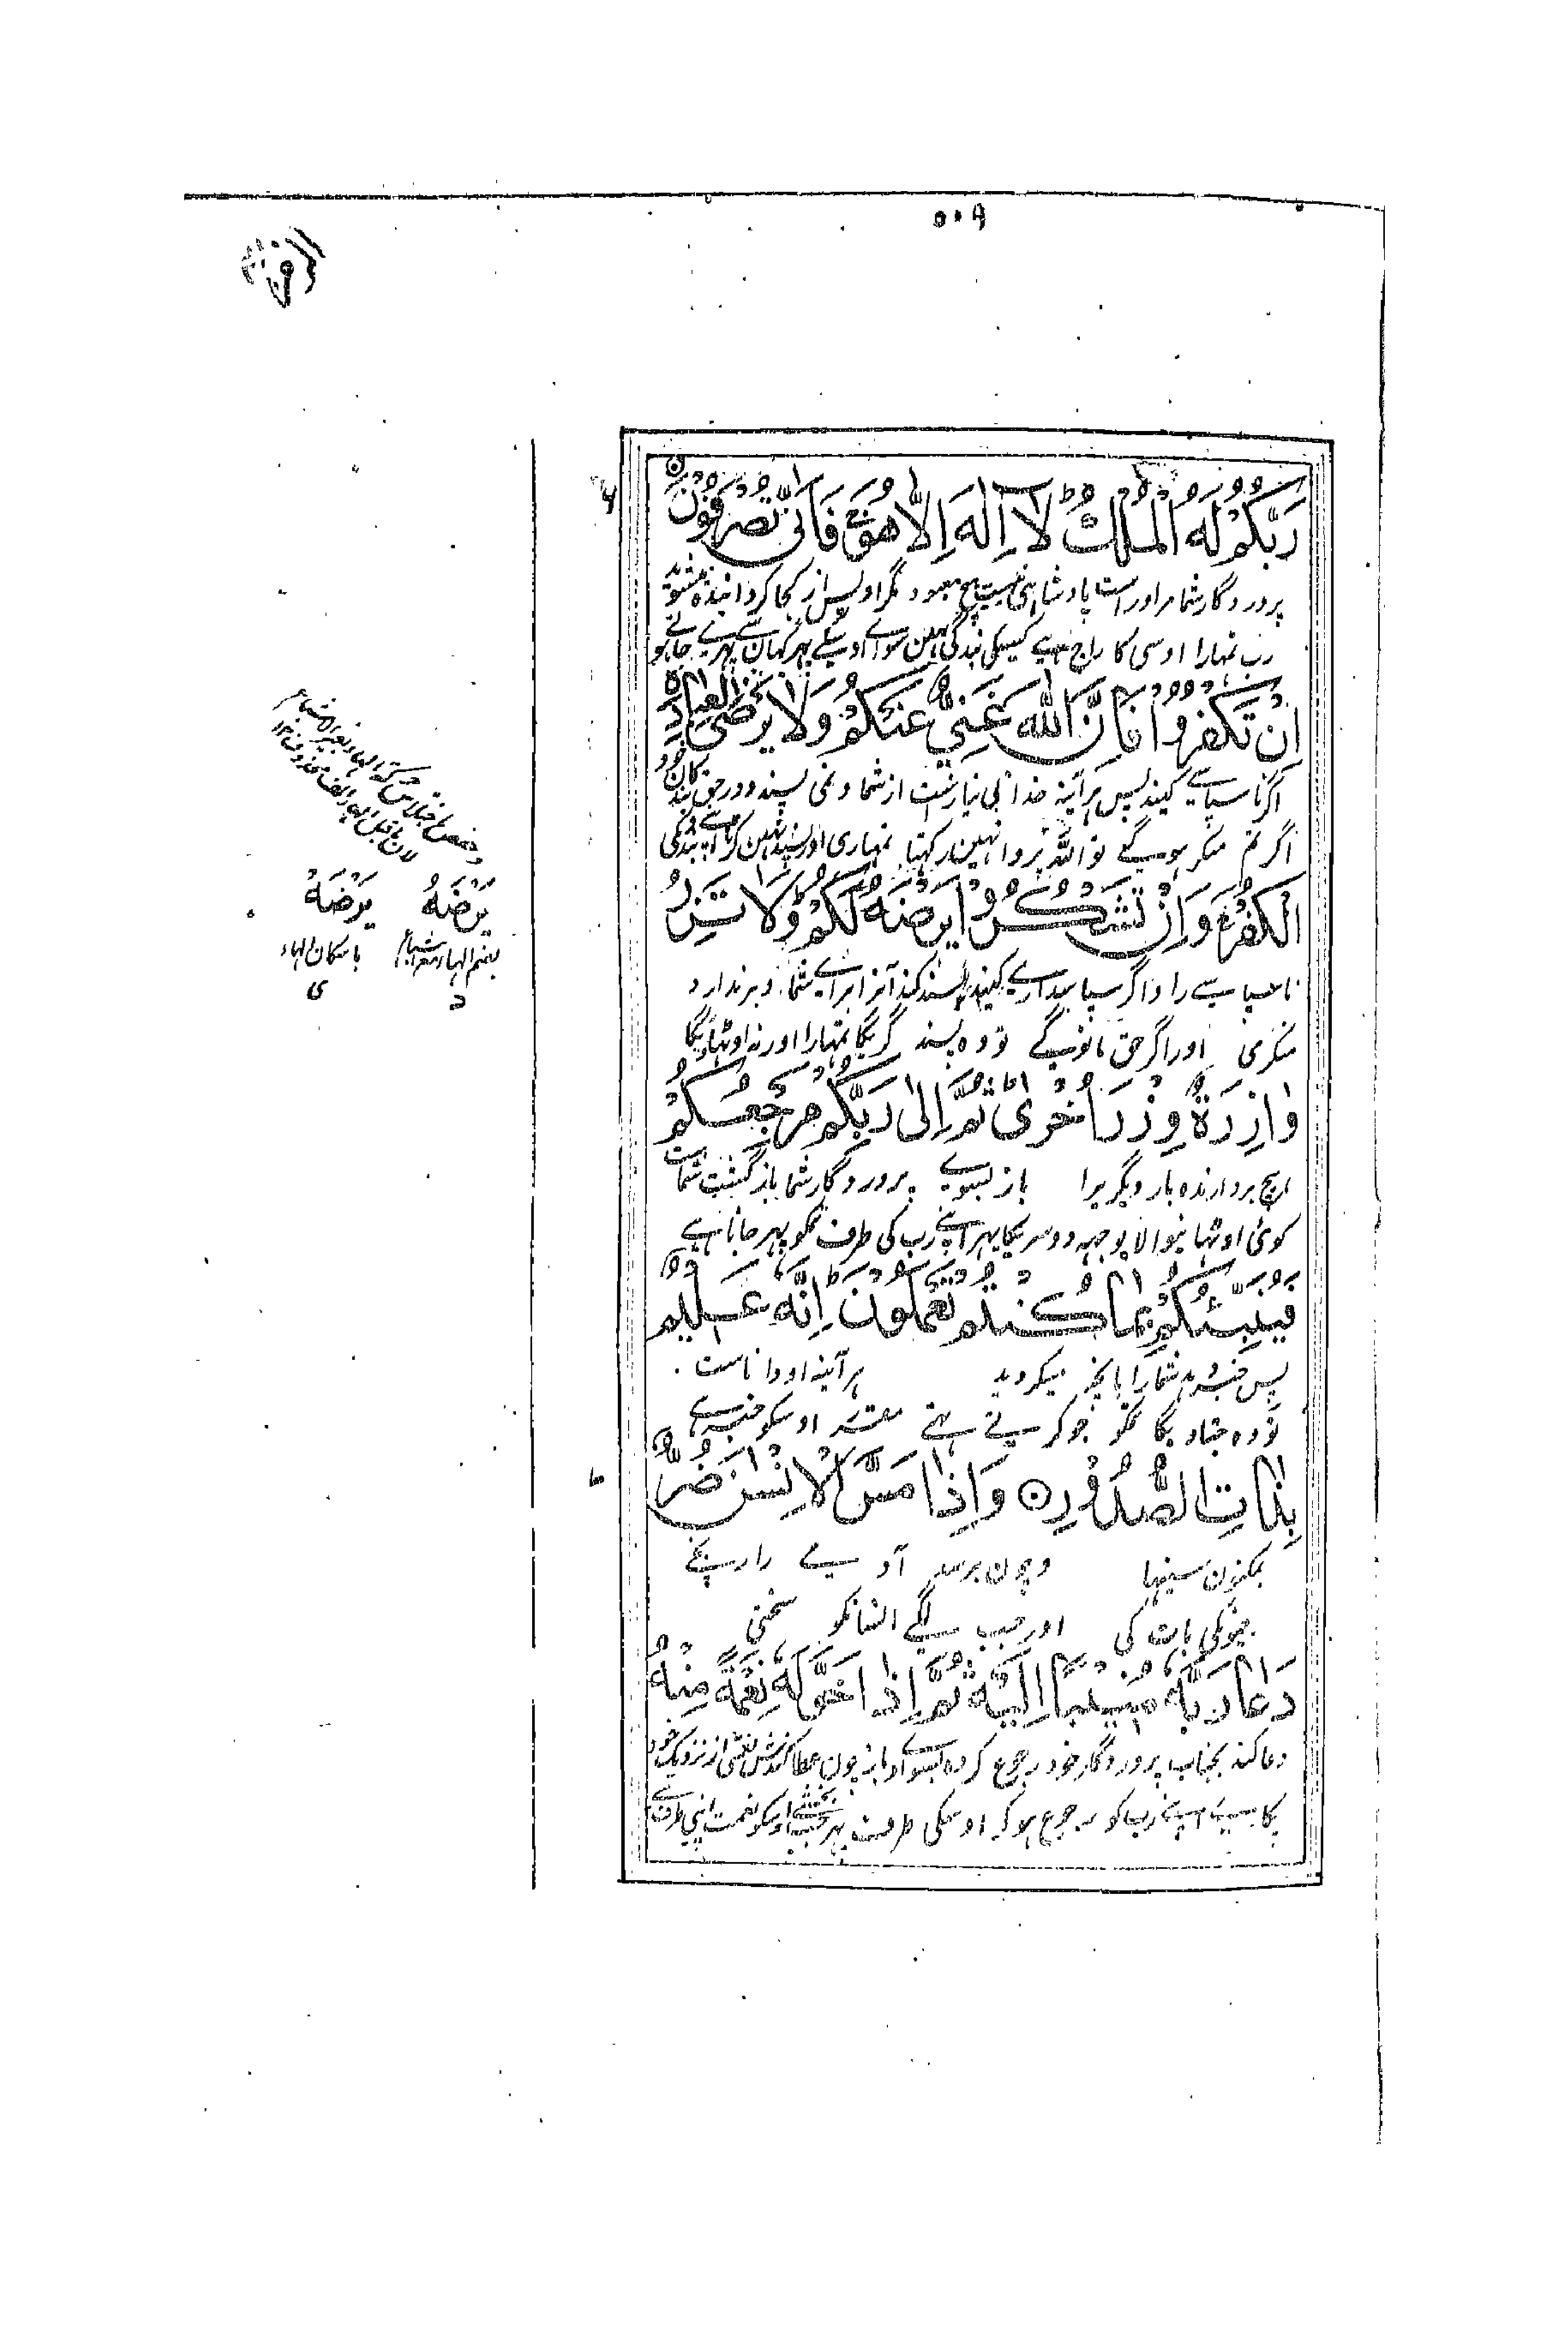 ٥٠٩
الزمر
رَبُّكُمْ لَهُ الْمُلْكُ ؕ لَآ اِلٰهَ اِلَّا هُوَ ۚ فَاَنّٰى تُصْرَفُوْنَ ۝
پروردگار شما مر اوراست پادشاہی نیست ہیچ معبود مگر او پس از کجا گردانیدہ میشوید
رب تمہارا اوسی کا راج ہے کسیکی بندگی نہین سواے اوسکے پہر کہان سے پہرے جاتے ہو
اِنْ تَكْفُرُوْا فَاِنَّ اللّٰهَ غَنِىٌّ عَنْكُمْ وَلَا يَرْضٰى لِعِبَادِهِ
اگر ناسپاسے کنید پس ہر آینہ خدا بی نیازست از شما و نمی پسندد در حق بندگان خود
اگر تم منکر ہوگے تو اللہ پروا نہین رکہتا تمہاری اور پسند نہین کرتا اپنے بندونکی
الْكُفْرَ ۚ وَاِنْ تَشْكُرُوْا يَرْضَهُ لَكُمْ ؕ وَلَا تَزِرُ
ناسپاسے را و اگر سپاسداری کنید پسند کند آنرا براے شما و برندارد
منکری اور اگر حق مانوگے تو وہ پسند کریگا تمہارا اور نہ اوٹہاویگا
وَازِرَةٌ وِّزْرَ اُخْرٰى ؕ ثُمَّ اِلٰى رَبِّكُمْ مَّرْجِعُكُمْ
ہیچ بردارندہ بار دیگریرا باز بسوے پروردگار شما بازگشت شماست
کوئی اوٹہانیوالا بوجہہ دوسریکا پہر اپنے رب کی طرف تمکو پہر جانا ہے
فَيُنَبِّئُكُمْ بِمَا كُنْتُمْ تَعْمَلُوْنَ ؕ اِنَّهٗ عَلِيْمٌۢ
پس خبر دہد شما را بانچہ میکردید ہر آینہ او داناست
تو وہ جتاویگا تمکو جو کرتے تہے مقرر اوسکو خبر ہے
بِذَاتِ الصُّدُوْرِ ۝ وَاِذَا مَسَّ الْاِنْسٰنَ ضُرٌّ
بمکنون سینہا و چون برسد آدمے را رنجے
جیونکی بات کی اور جب لگے انسانکو سختی
دَعَا رَبَّهٗ مُنِيْبًا اِلَيْهِ ثُمَّ اِذَا خَوَّلَهٗ نِعْمَةً مِّنْهُ
دعا کند بجناب پروردگار خود رجوع کردہ بسوے او باز چون عطا کندش نعمتی از نزدیک خود
پکارے اپنے رب کو رجوع ہوکر اوسکی طرف پہر جب بخشے اوسکو نعمت اپنی طرف سے
يَرْضَهُ يَرْضَهْ
بضم الہاء مع اشباع باسکان الہاء
د ی